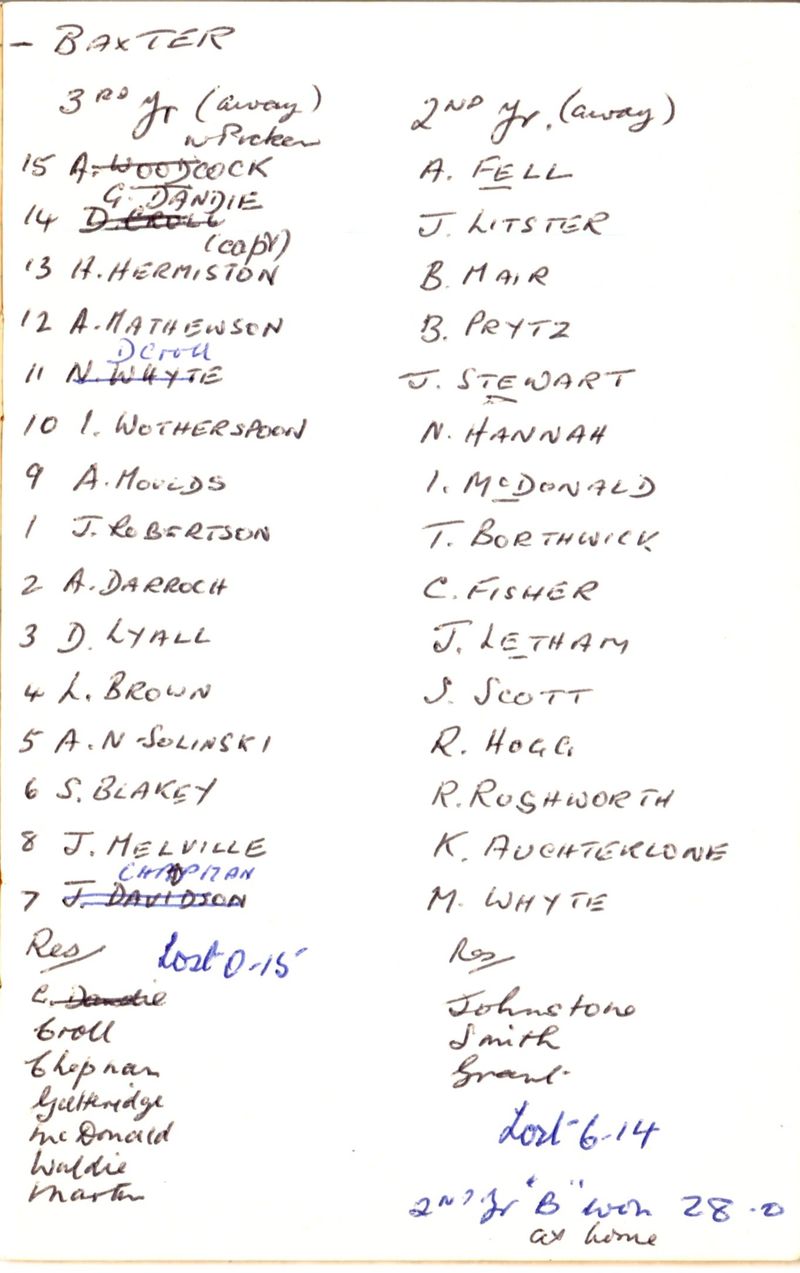 - BAXTER
3RD Yr (away)
15 A. WOODCOCK
G. DANDIE
14 D. CROLL
(capt)
13 H. HERMISTON
12 A. MATHEWSON
D Croll
11 N. WHYTE
10 I. WOTHERSPOON
9 A. MOULDS
1 J. ROBERTSON
2 A. DARROCH
3 D. LYALL
4 L. BROWN
5 A. N-SOLINSKI
6 S. BLAKEY
8 J. MELVILLE
CHAPMAN
7 J. DAVIDSON
Res
Lost 0-15
C. Dandie
Croll
Chapman
Gutteridge
McDonald
Waldie
Martin
2ND Yr. (away)
A. FELL
J. LITSTER
B. MAIR
B. PRYTZ
J. STEWART
N. HANNAH
I. McDONALD
T. BORTHWICK
C. FISHER
J. LETHAM
S. SCOTT
R. HOGG
R. RUSHWORTH
K. AUCHTERLONE
M. WHYTE
Res
Johnstone
Smith
Grant
Lost 6-14
2ND Yr "B" won 28-0
at home